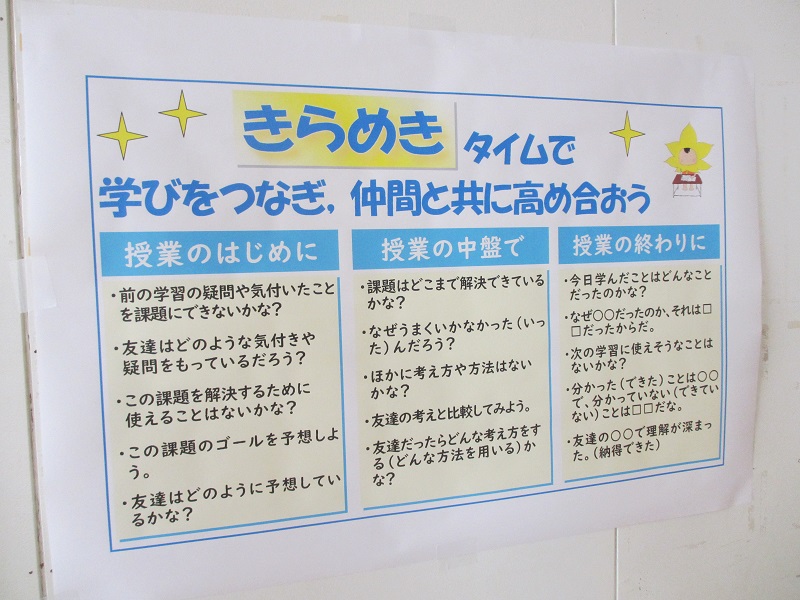 きらめきタイムで
学びをつなぎ，仲間と共に高め合おう
授業のはじめに
・前の学習の疑問や気付いたこと
を課題にできないかな？
・友達はどのような気付きや
疑問をもっているだろう？
・この課題を解決するために
使えることはないかな？
・この課題のゴールを予想しよ
う。
・友達はどのように予想してい
るかな？
授業の中盤で
・課題はどこまで解決できている
かな？
・なぜうまくいかなかった（いっ
た）んだろう？
・ほかに考え方や方法はない
かな？
・友達の考えと比較してみよう。
・友達だったらどんな考え方をす
る（どんな方法を用いる）か
な？
授業の終わりに
・今日学んだことはどんなこと
だったのかな？
・なぜ〇〇だったのか、それは□
□だったからだ。
・次の学習に使えそうなことは
ないかな？
・分かった（できた）ことは〇〇
で、分かっていない（できてい
ない）ことは□□だな。
・友達の〇〇で理解が深まっ
た。（納得できた）